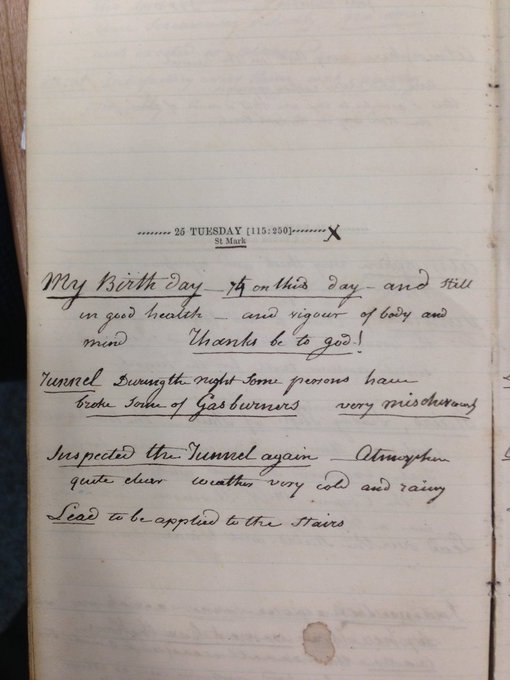 25 TUESDAY [115:250] X
St Mark
My Birth day – 74 on this day – and still
in good health – and vigour of body and
mind Thanks be to god!
Tunnel During the night some persons have
broke some of Gasburners very mischievously
Inspected the Tunnel again – Atmosphere
quite clear weather very cold and rainy
Lead to be applied to the stairs